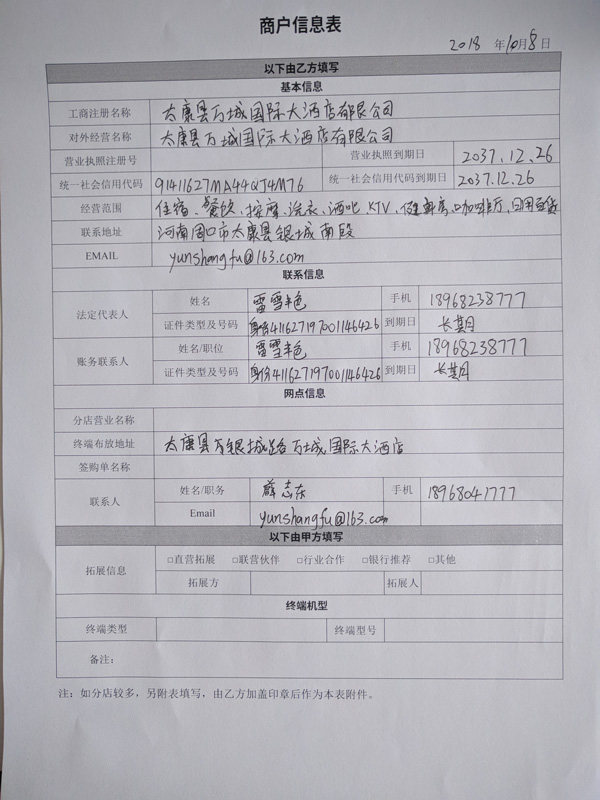 商户信息表
2018 年10月8日
以下由乙方填写
基本信息
工商注册名称 太康县万城国际大酒店有限公司
对外经营名称 太康县万城国际大酒店有限公司
营业执照注册号 营业执照到期日 2037.12.26
统一社会信用代码 91411627MA44QJ4M76 统一社会信用代码到期日 2037.12.26
经营范围 住宿、餐饮、按摩、洗衣、酒吧、KTV、健身房、咖啡厅、日用百货
联系地址 河南周口市太康县银城南段
EMAIL yunshangfu@163.com
联系信息
法定代表人 姓名 雷雪艳 手机 18968238777
证件类型及号码 身份411627197001146426 到期日 长期
账务联系人 姓名/职位 雷雪艳 手机 18968238777
证件类型及号码 身份411627197001146426 到期日 长期
网点信息
分店营业名称
终端布放地址 太康县银城路万城国际大酒店
签购单名称
联系人 姓名/职务 薛志东 手机 18968041777
Email yunshangfu@163.com
以下由甲方填写
拓展信息 □直营拓展 □联营伙伴 □行业合作 □银行推荐 □其他
拓展方 拓展人
终端机型
终端类型 终端型号
备注：
注：如分店较多，另附表填写，由乙方加盖印章后作为本表附件。